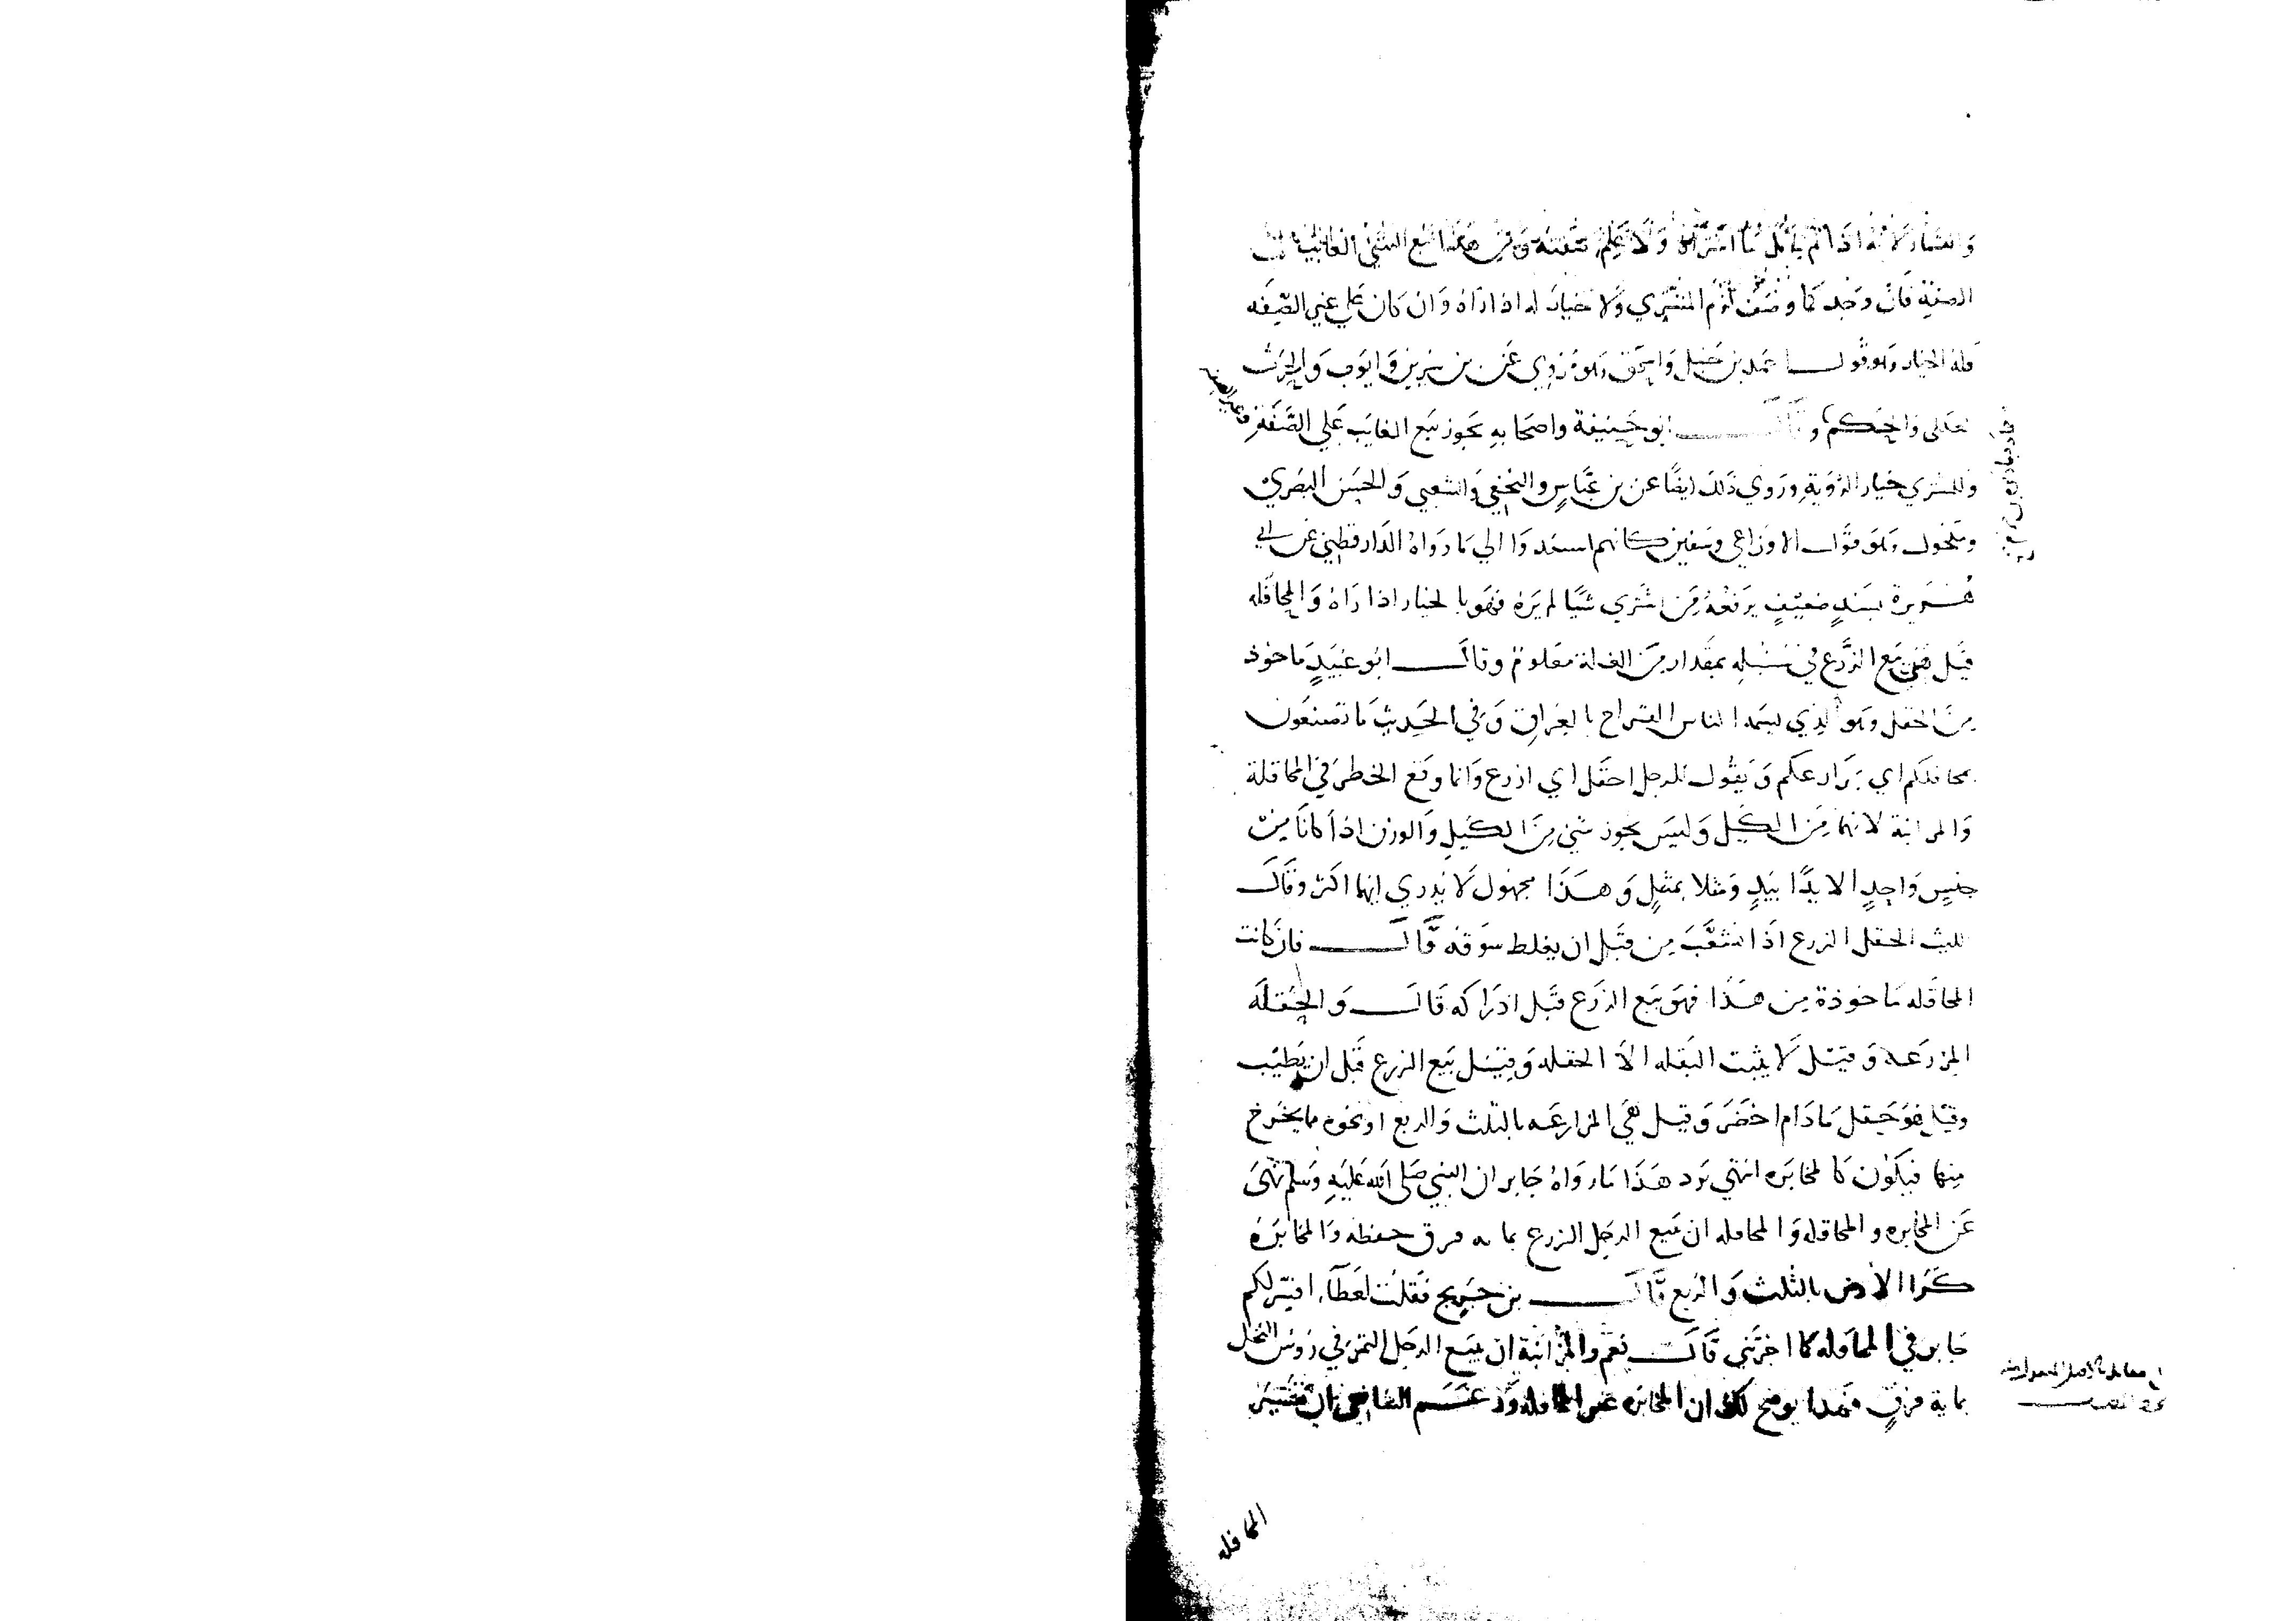 والفساد لانه اذا لم يتامل ما اشتراه ولا علم صفته ومن هذا بيع الشي الغايب على
الصفة فان وجد كما وصف لزم المشتري ولا خيار له اذا راه وان كان علي غير الصفه
فله الخيار وهو قول احمد بن حنبل واسحق وهو مروي عن بن سيرين وايوب والحرث
العكلى والحكم وقال ابو حنيفة واصحابه يجوز بيع الغايب علي الصفة وغير الصفة
وللمشتري خيار الروية وروي ذلك ايضا عن بن عباس والنخعي والشعبي والحسن البصري
ومكحول وهو قول الاوزاعي وسفين كانهم استندوا الي ما رواه الدارقطني عن ابي
هريرة بسند ضعيف يرفعه من اشتري شيا لم يره فهو بالخيار اذا راه والمحاقله
قيل هي بيع الزرع في سنبله بمقدار من الغلة معلوم وقال ابو عبيد ماخوذ
من الحقل وهو الذي يسميه الناس القراح بالعراق وفي الحديث ما تصنعون
بمحاقلكم اي بمزارعكم ويقول للرجل احقل اي ازرع وانما وقع الخطر في المحاقلة
والمزابنة لانهما من الكيل وليس يجوز شي من الكيل والوزن اذا كانا من
جنس واحد الا يدا بيد ومثلا بمثل وهذا مجهول لا يدري ايهما اكثر وقال
الليث الحقل الزرع اذا تشعب من قبل ان يغلظ سوقه قال فان كانت
المحاقله ماخوذة من هذا فهو بيع الزرع قبل ادراكه قال والحقله
المزرعه وقيل لا ينبت البقله الا الحقله وقيل بيع الزرع قبل ان يطيب
وقيل هو حقل ما دام اخضر وقيل هي المزارعه بالثلث والربع او نحوه مما يخرج
منها فيكون كالمخابره انتهي يرد هذا ما رواه جابر ان النبي صلى الله عليه وسلم نهى
عن المخابره والمحاقله والمحاقله ان يبيع الرجل الزرع بمايه فرق حنطه والمخابره
كرا الارض بالثلث والربع قال بن جريج فقلت لعطاء افسر لكم
جابر في المحاقله كما اخبرتني قال نعم والمزابنة ان يبيع الرجل التمر في روس النخل
بماية فرق فهذا يوضح لك ان المخابره غير المحاقله وزعم الشافعي ان تفسير
المحاقله